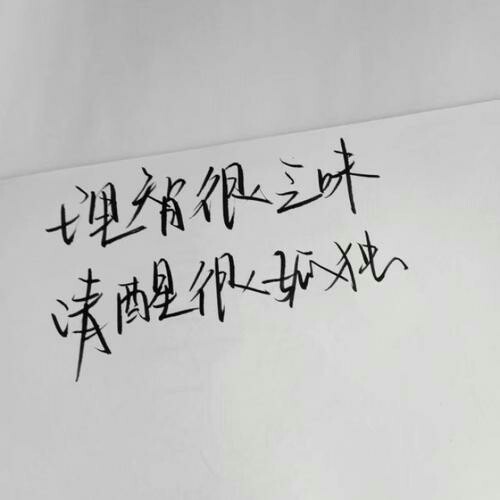 理智很三味
清醒很孤独